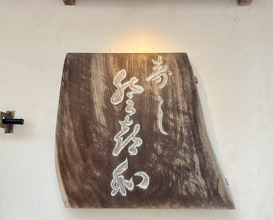 寿し
登喜和